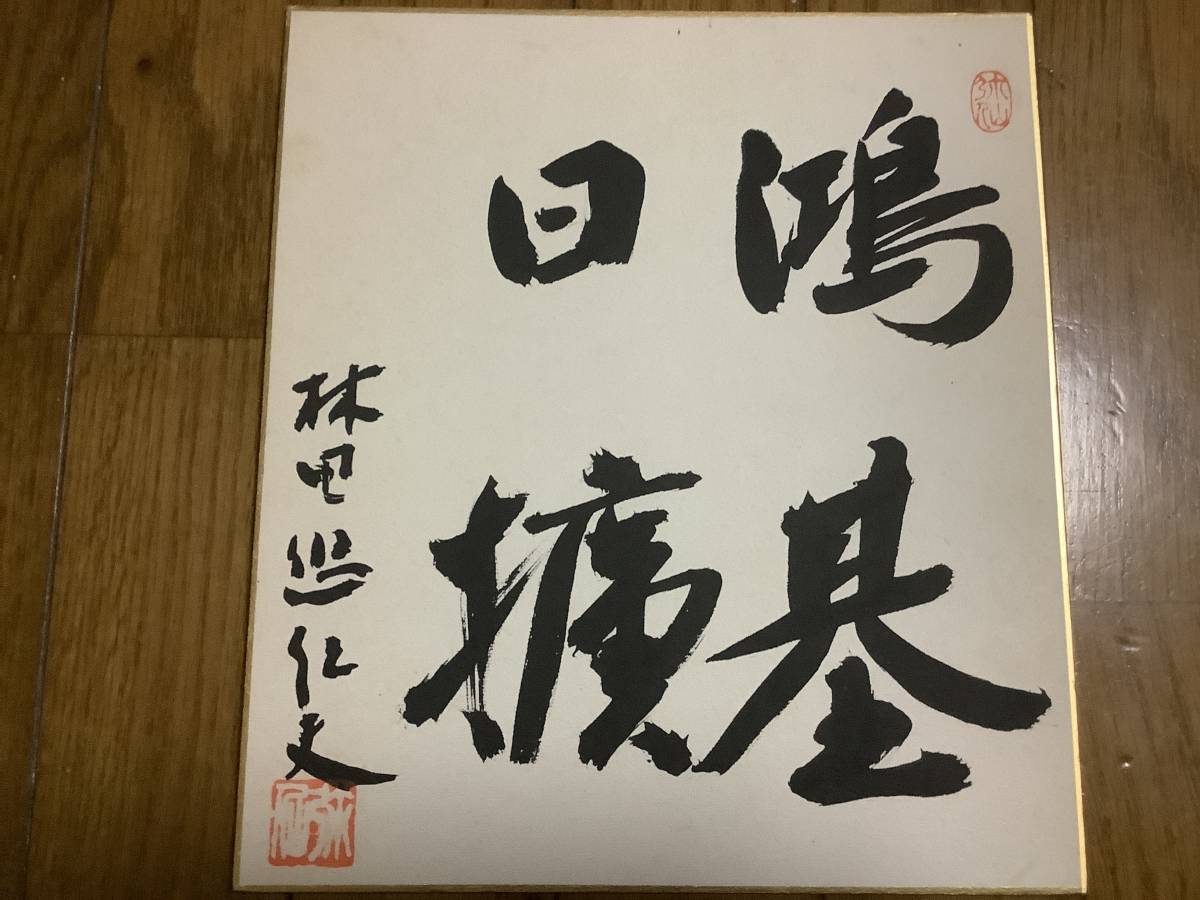 鴻基
日擴
林田悠紀夫